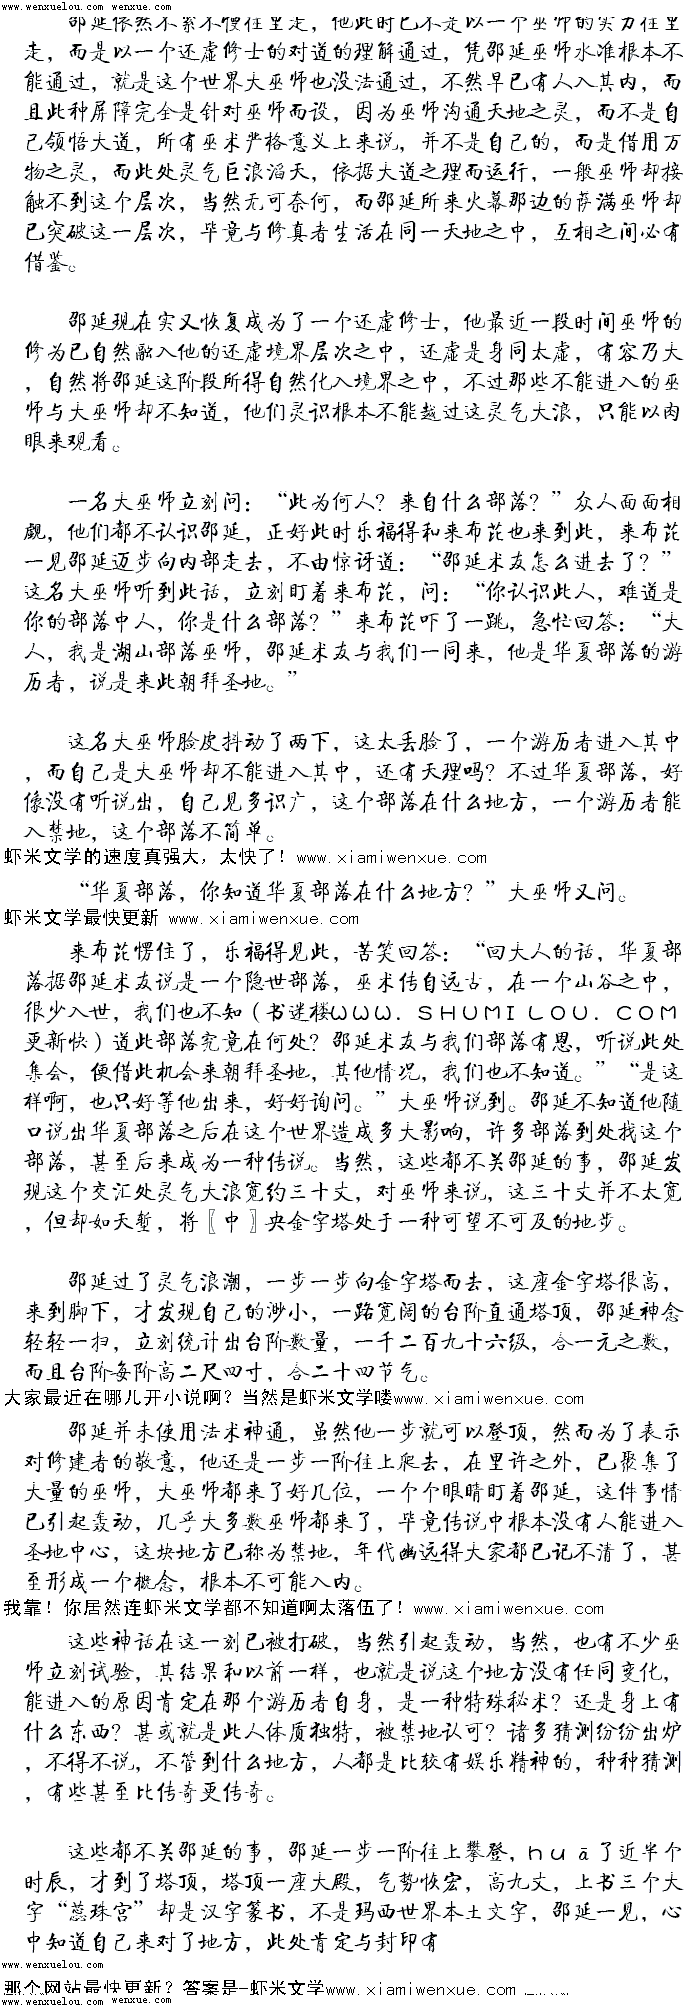 www.wenxuelou.com
www.wenxuelou.com
邵延依然不紧不慢往里走，他此时已不是以一个巫师的实力往里
走，而是以一个还虚修士的对道的理解通过，凭邵延巫师水准根本不
能通过，就是这个世界大巫师也没法通过，不然早已有人入其内，而
且此种屏障完全是针对巫师而设，因为巫师沟通天地之灵，而不是自
己领悟大道，所有巫术严格意义上来说，并不是自己的，而是借用万
物之灵，而此处灵气巨浪滔天，依据大道之理而运行，一般巫师却接
触不到这个层次，当然无可奈何，而邵延所来火幕那边的萨满巫师却
已突破这一层次，毕竟与修真者生活在同一天地之中，互相之间必有
借鉴。
邵延现在实又恢复成为了一个还虚修士，他最近一段时间巫师的
修为已自然融入他的还虚境界层次之中，还虚是身同太虚，有容乃大
，自然将邵延这阶段所得自然化入境界之中，不过那些不能进入的巫
师与大巫师却不知道，他们灵识根本不能越过这灵气大浪，只能以肉
眼来观看。
一名大巫师立刻问：“此为何人？来自什么部落？”众人面面相
觑，他们都不认识邵延，正好此时乐福得和来布茈也来到此，来布茈
一见邵延迈步向内部走去，不由惊讶道：“邵延术友怎么进去了？”
这名大巫师听到此话，立刻盯着来布茈，问：“你认识此人，难道是
你的部落中人，你是什么部落？”来布茈吓了一跳，急忙回答：“大
人，我是湖山部落巫师，邵延术友与我们一同来，他是华夏部落的游
历者，说是来此朝拜圣地。”
这名大巫师脸皮抖动了两下，这太丢脸了，一个游历者进入其中
，而自己是大巫师却不能进入其中，还有天理吗？不过华夏部落，好
像没有听说出，自己见多识广，这个部落在什么地方，一个游历者能
入禁地，这个部落不简单。
虾米文学的速度真强大，太快了！www.xiamiwenxue.com
“华夏部落，你知道华夏部落在什么地方？”大巫师又问。
虾米文学最快更新 www.xiamiwenxue.com
来布茈愣住了，乐福得见此，苦笑回答：“回大人的话，华夏部
落据邵延术友说是一个隐世部落，巫术传自远古，在一个山谷之中，
很少入世，我们也不知（书迷楼ＷＷＷ．ＳＨＵＭＩＬＯＵ．ＣＯＭ
更新快）道此部落究竟在何处？邵延术友与我们部落有恩，听说此处
集会，便借此机会来朝拜圣地，其他情况，我们也不知道。”“是这
样啊，也只好等他出来，好好询问。”大巫师说到。邵延不知道他随
口说出华夏部落之后在这个世界造成多大影响，许多部落到处找这个
部落，甚至后来成为一种传说。当然，这些都不关邵延的事，邵延发
现这个交汇处灵气大浪宽约三十丈，对巫师来说，这三十丈并不太宽
，但却如天堑，将〖中〗央金字塔处于一种可望不可及的地步。
邵延过了灵气浪潮，一步一步向金字塔而去，这座金字塔很高，
来到脚下，才发现自己的渺小，一路宽阔的台阶直通塔顶，邵延神念
轻轻一扫，立刻统计出台阶数量，一千二百九十六级，合一元之数，
而且台阶每阶高二尺四寸，合二十四节气。
大家最近在哪儿开小说啊？当然是虾米文学喽www.xiamiwenxue.com
邵延并未使用法术神通，虽然他一步就可以登顶，然而为了表示
对修建者的敬意，他还是一步一阶往上爬去，在里许之外，已聚集了
大量的巫师，大巫师都来了好几位，一个个眼睛盯着邵延，这件事情
已引起轰动，几乎大多数巫师都来了，毕竟传说中根本没有人能进入
圣地中心，这块地方已称为禁地，年代幽远得大家都已记不清了，甚
至形成一个概念，根本不可能入内。
我靠！你居然连虾米文学都不知道啊太落伍了！www.xiamiwenxue.com
这些神话在这一刻已被打破，当然引起轰动，当然，也有不少巫
师立刻试验，其结果和以前一样，也就是说这个地方没有任何变化，
能进入的原因肯定在那个游历者自身，是一种特殊秘术？还是身上有
什么东西？甚或就是此人体质独特，被禁地认可？诸多猜测纷纷出炉
，不得不说，不管到什么地方，人都是比较有娱乐精神的，种种猜测
，有些甚至比传奇更传奇。
这些都不关邵延的事，邵延一步一阶往上攀登，ｈｕā了近半个
时辰，才到了塔顶，塔顶一座大殿，气势恢宏，高九丈，上书三个大
字“蕊珠宫”却是汉字篆书，不是玛西世界本土文字，邵延一见，心
中知道自己来对了地方，此处肯定与封印有
www.wenxuelou.com
那个网站最快更新？答案是-虾米文学www.xiamiwenxue.com
www.wenxuelou.com
www.wenxuelou.com